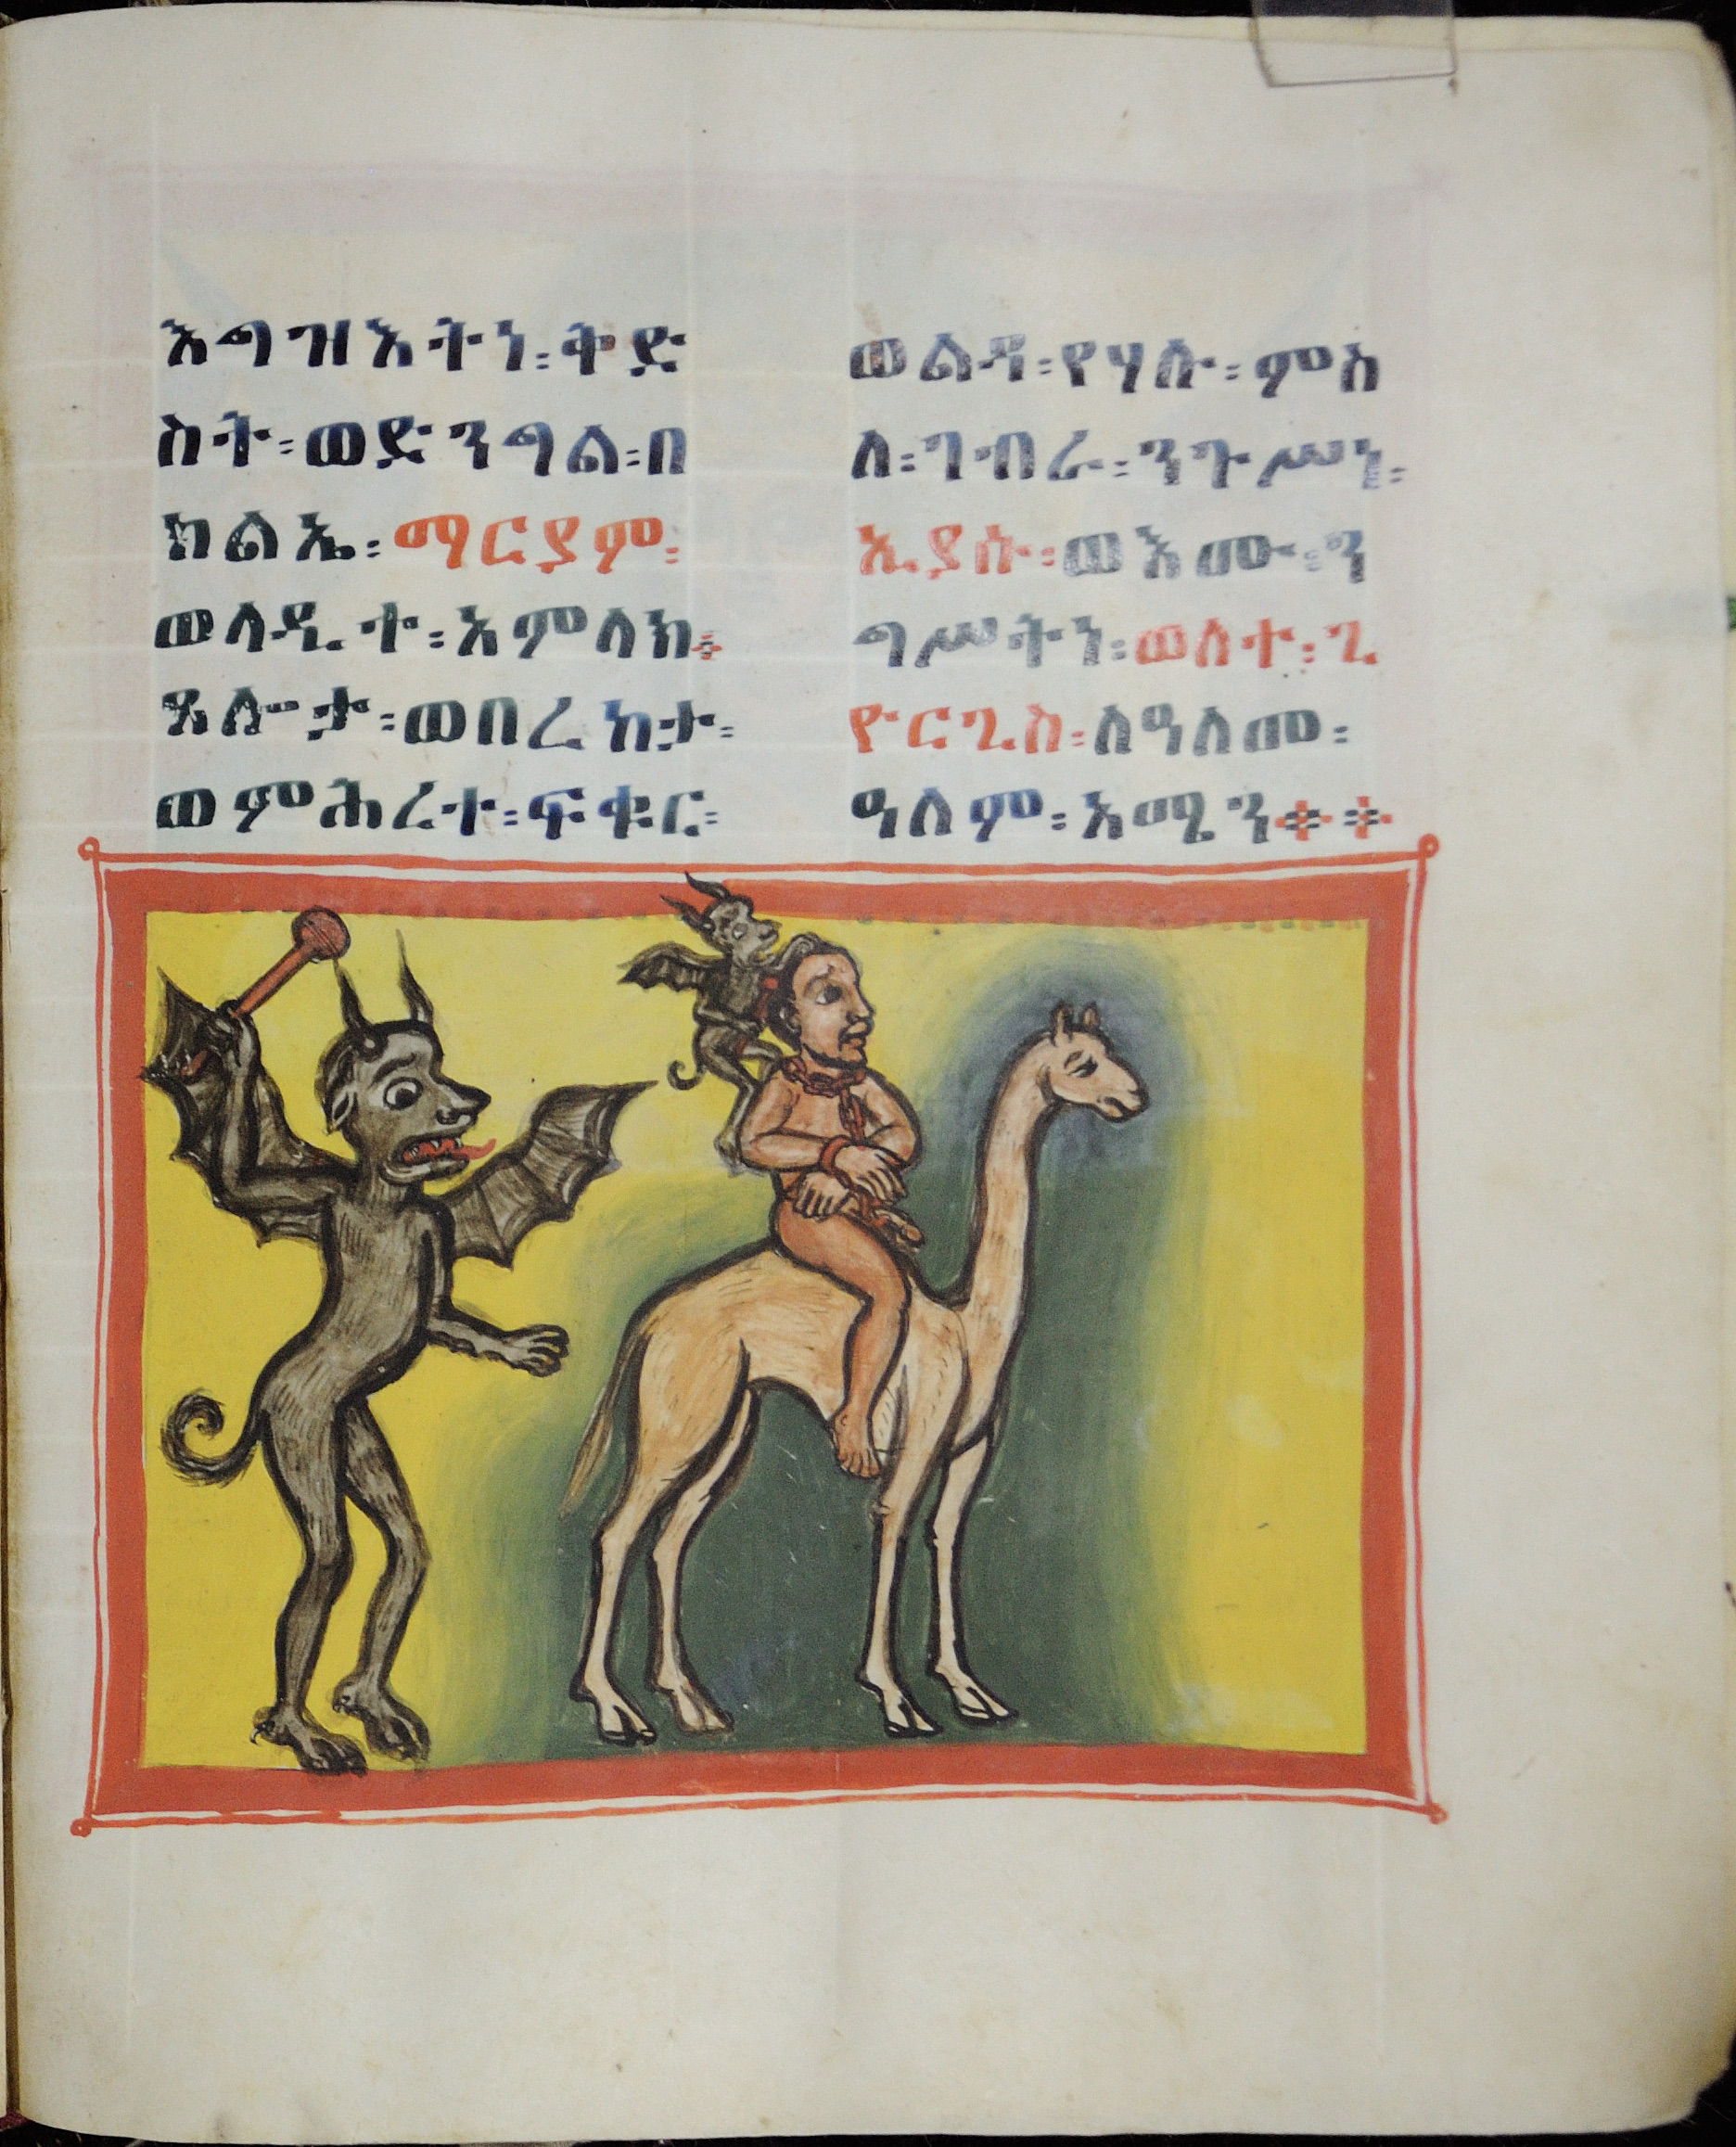 እግዝእትነ፡ቅድ
ስት፡ወድንግል፡በ
ክልኤ፡ማርያም፡
ወላዲተ፡አምላክ፨
ጸሎታ፡ወበረከታ፡
ወምሕረተ፡ፍቁር፡
ወልዳ፡የሃሉ፡ምስ
ለ፡ገብራ፡ንጉሥነ፡
ኢያሱ፡ወእሙ፡ን
ግሥትነ፡ወለተ፡ጊ
ዮርጊስ፡ለዓለመ፡
ዓለም፡አሜን፨፨